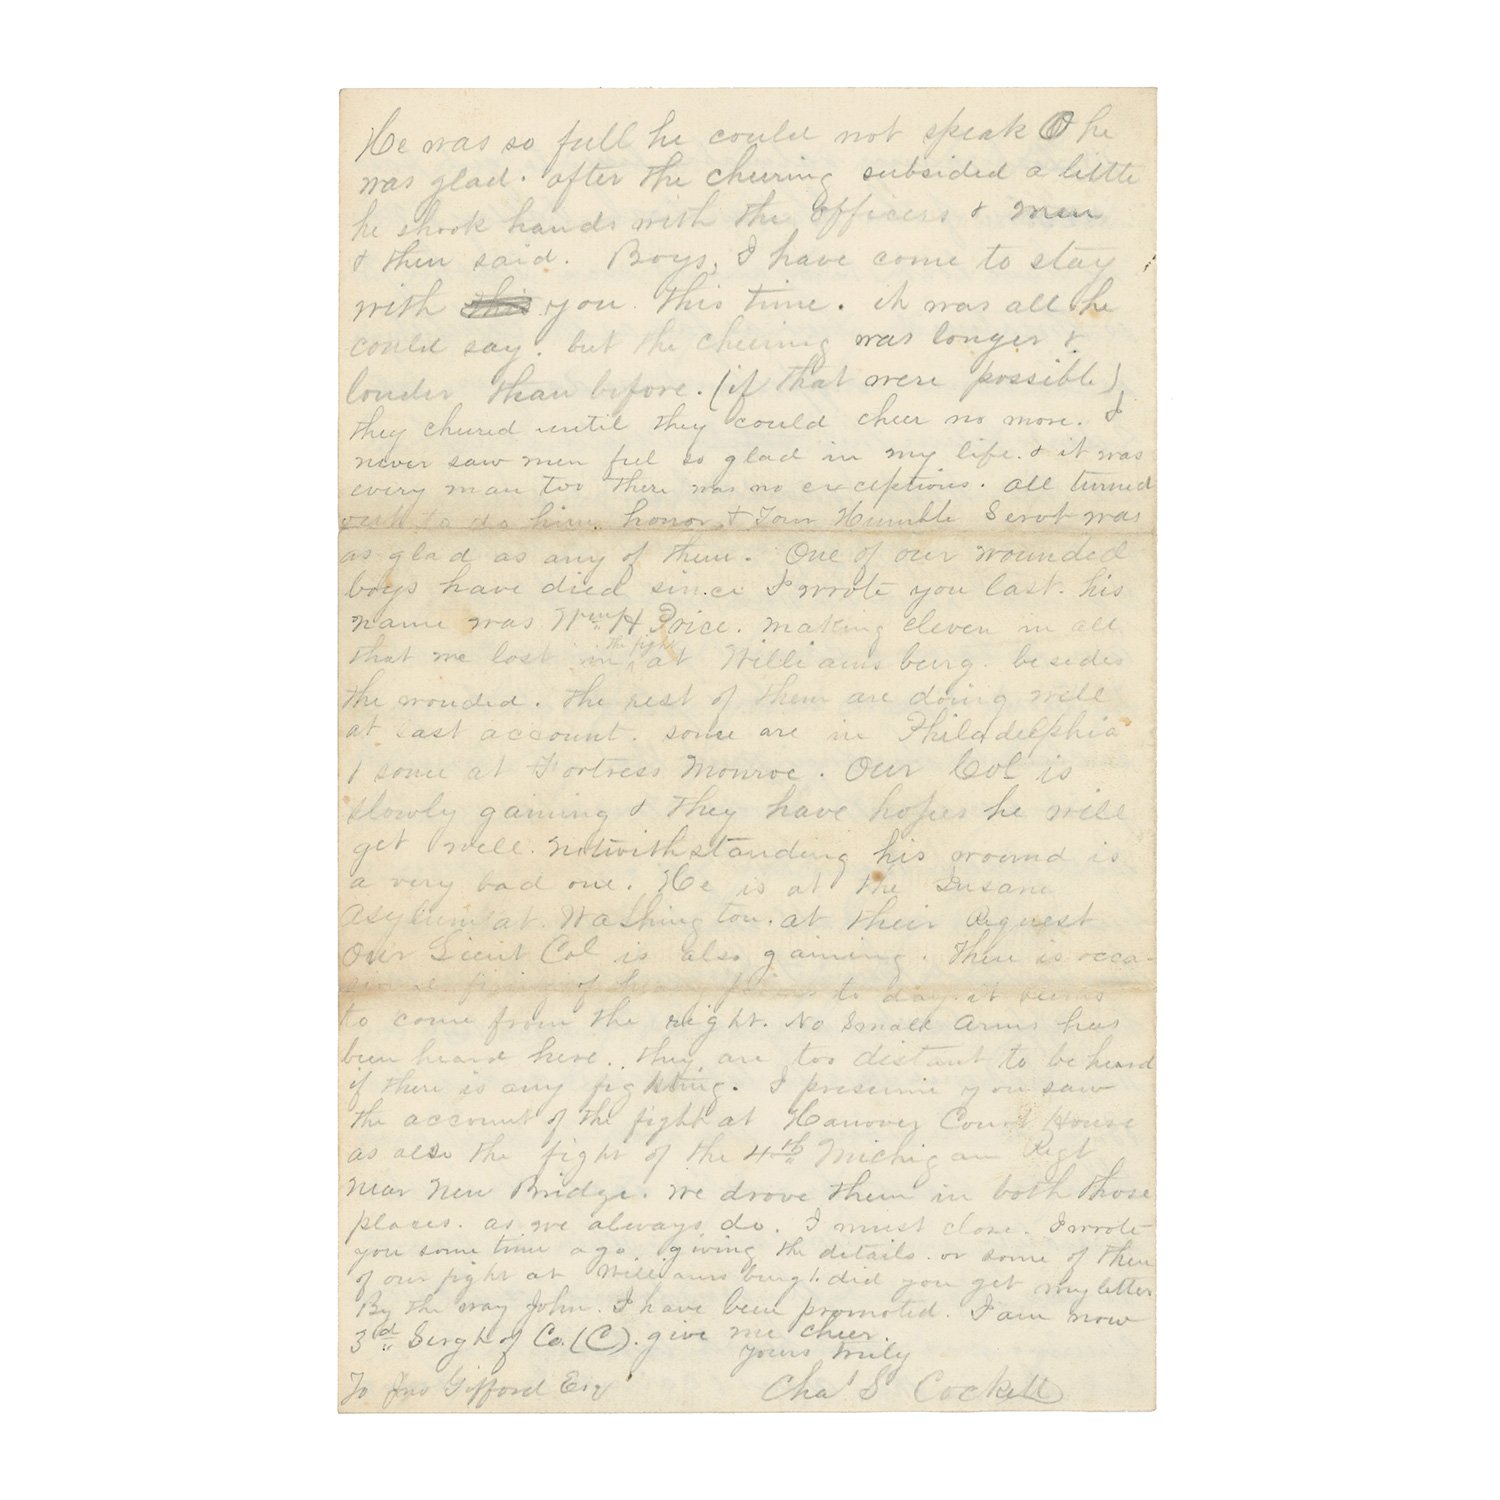 He was so full he could not speak O he
was glad. after the cheering subsided a little
he shook hands with the officers & men
& then said. Boys, I have come to stay
with this you this time. it was all he
could say. but the cheering was longer &
louder than before. (if that were possible)
they cheered until they could cheer no more. I
never saw men feel so glad in my life. & it was
every man too there was no exceptions. all turned
out to do him honor & Your Humble Servt was
as glad as any of them. One of our wounded
boys have died since I wrote you last. his
name was Wm H Price. making eleven in all
that we lost in the fight at Williamsburg. besides
the wouded. the rest of them are doing well
at last account. some are in Philadelphia
& some at Fortress Monroe. Our Col is
slowly gaining & they have hopes he will
get well. notwithstanding his wound is
a very bad one. He is at the Insane
Asylum at Washington. at their Request
Our Lieut Col is also gaining. There is occa-
sional firing of heavy guns to day. it seems
to come from the right. No Small Arms has
been heard here. they are too distant to be heard
if there is any fighting. I presume you saw
the account of the fight at Hanover Court House
as also the fight of the 4th Michigan Regt
near New Bridge. we drove them in both those
places. as we always do. I must close. I wrote
you some time ago giving the details. or some of them
of our fight at Williamsburg. did you get my letter
By the way John. I have been promoted. I am now
3d Sergt of Co. (C). give me cheer.
yours truly
To Jno Gifford Esq Chas S Cockett